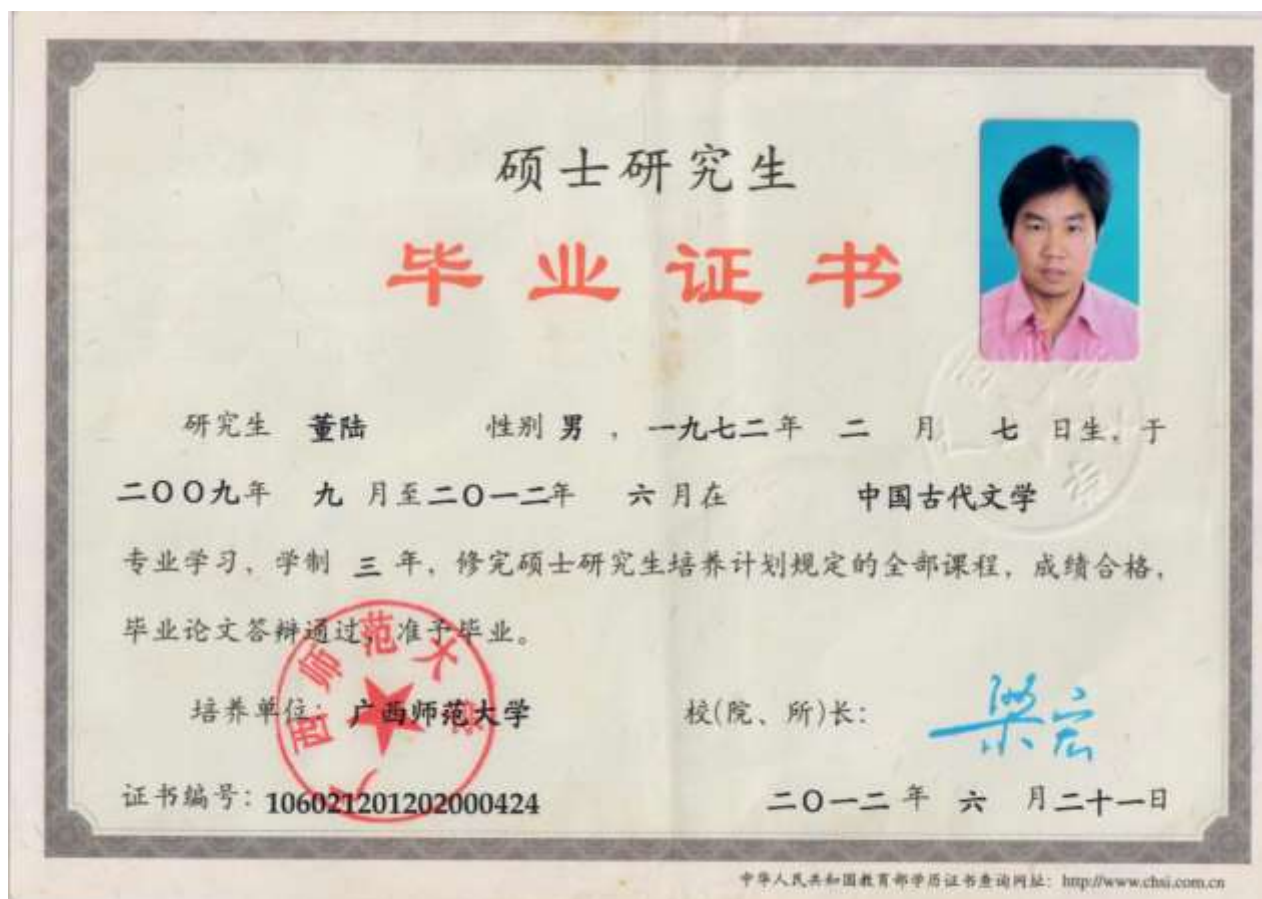 硕士研究生
毕业证书
研究生 董陆 性别 男 ，一九七二年 二 月 七 日生，于
二〇〇九年 九 月至二〇一二年 六 月在 中国古代文学
专业学习，学制 三 年，修完硕士研究生培养计划规定的全部课程，成绩合格，
毕业论文答辩通过，准予毕业。
培养单位：广西师范大学 校(院、所)长： 梁宏
证书编号：106021201202000424 二〇一二 年 六 月二十一日
广西师范大学
中华人民共和国教育部学历证书查询网址：http://www.chsi.com.cn